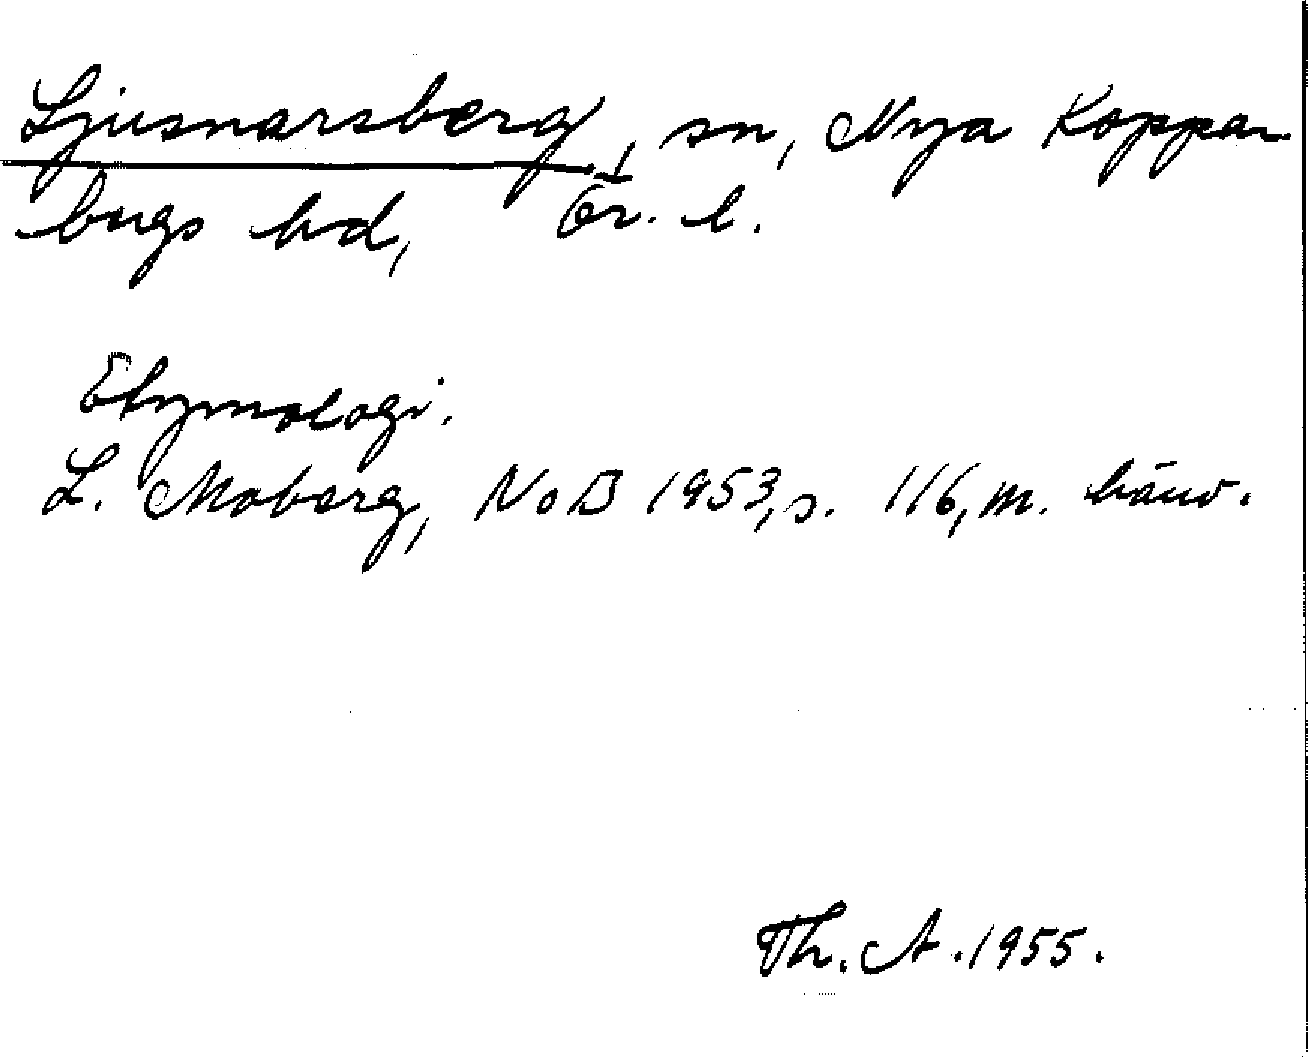 Ljusnarsberg, sn, Nya Koppar-
bergs bd, Ör. l.
Etymologi.
L. Moberg, NoB 1953, s. 116, m. hänv.
Th. A. 1955.